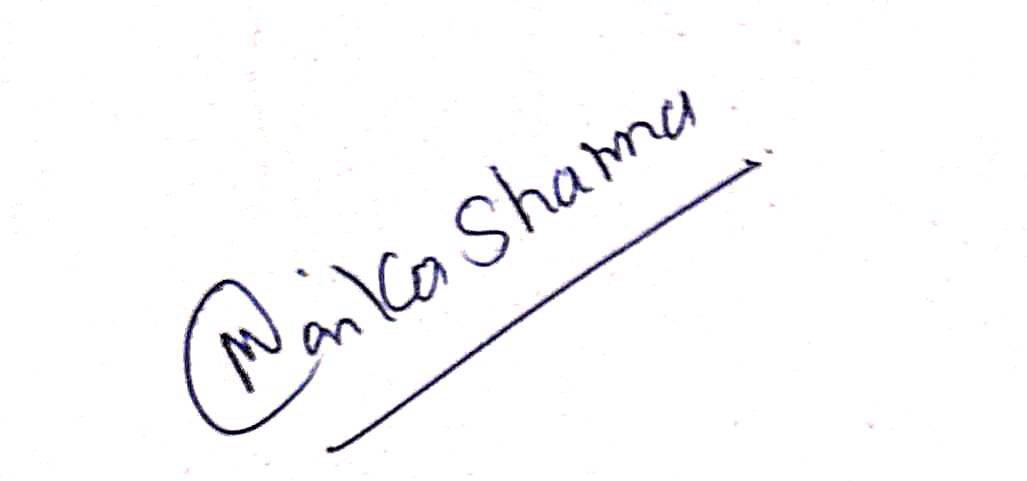 Manika Sharma